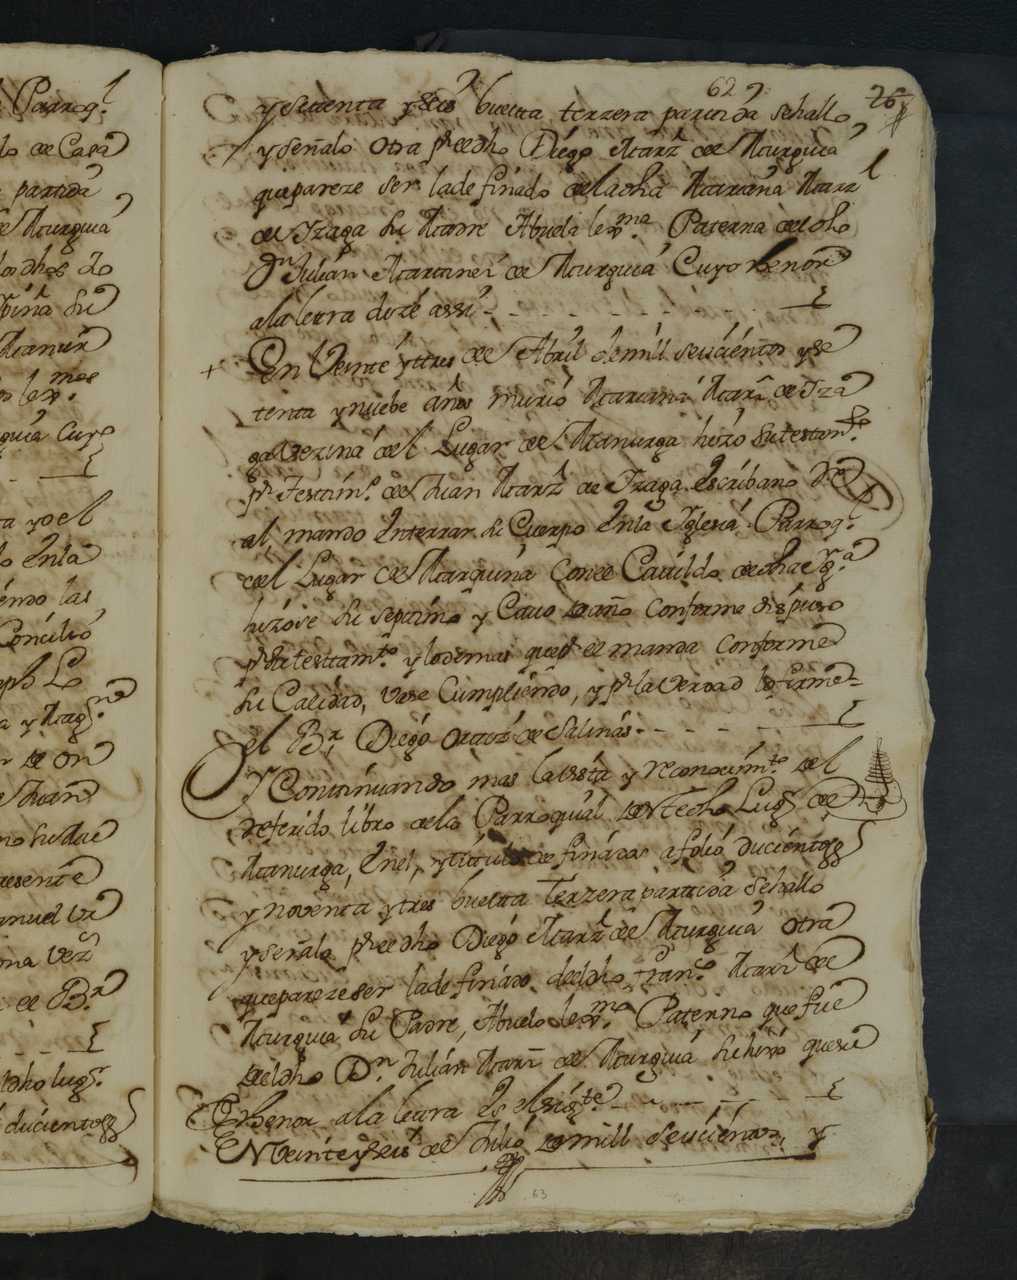 62
26
y setenta y seis buelta terzera partida se hallo
y señalo otra pr el dho Diego Martz de Murguia
que pareze ser la de finado de la dha Mariana Martz
de Yzaga su Madre Abuela lexma Paterna de dho
Dn Julian Martinez de Murguia Cuyo thenor
a la letra dize assi
En Veinte y tres de Abril de mill seiscientos y se
tenta y nuebe años murio Mariana Martz de Yza
ga Vezina de el Lugar de Manurga hizo su testamto
pr Testimo de Juan Martz de Yzaga Escribano Re
al mando Enterrar su Cuerpo En la Yglesia Parroql
de el Lugar de Manurga con el Cavildo de dha Ygla
hizose su septimo y Cavo de año Conforme dispuso
pr su testamto y lo demas que pr el manda Conforme
su Calidad, vase Cumpliendo, y pr la verdad lo firme
el Br Diego Ortiz de Salinas
Y Continuando mas la vista y reconocimto del
referido libro de la Parroquial de este dho Lugr de
Manurga, En el, y titulo de finados a folio ducientos
y noventa y tres buelta terzera partida se hallo
y señalo pr el dho Diego Martz de Murguia otra
que pareze ser la de finado de el dho Franco Martz de
Murguia su Padre, Abuelo lexmo Paterno que fue
de el dho Dn Julian Martz de Murguia su hijo que su
thenor a la letra Es el sigte
EN Veinte y seis de Julio de mill seiscientos y
63